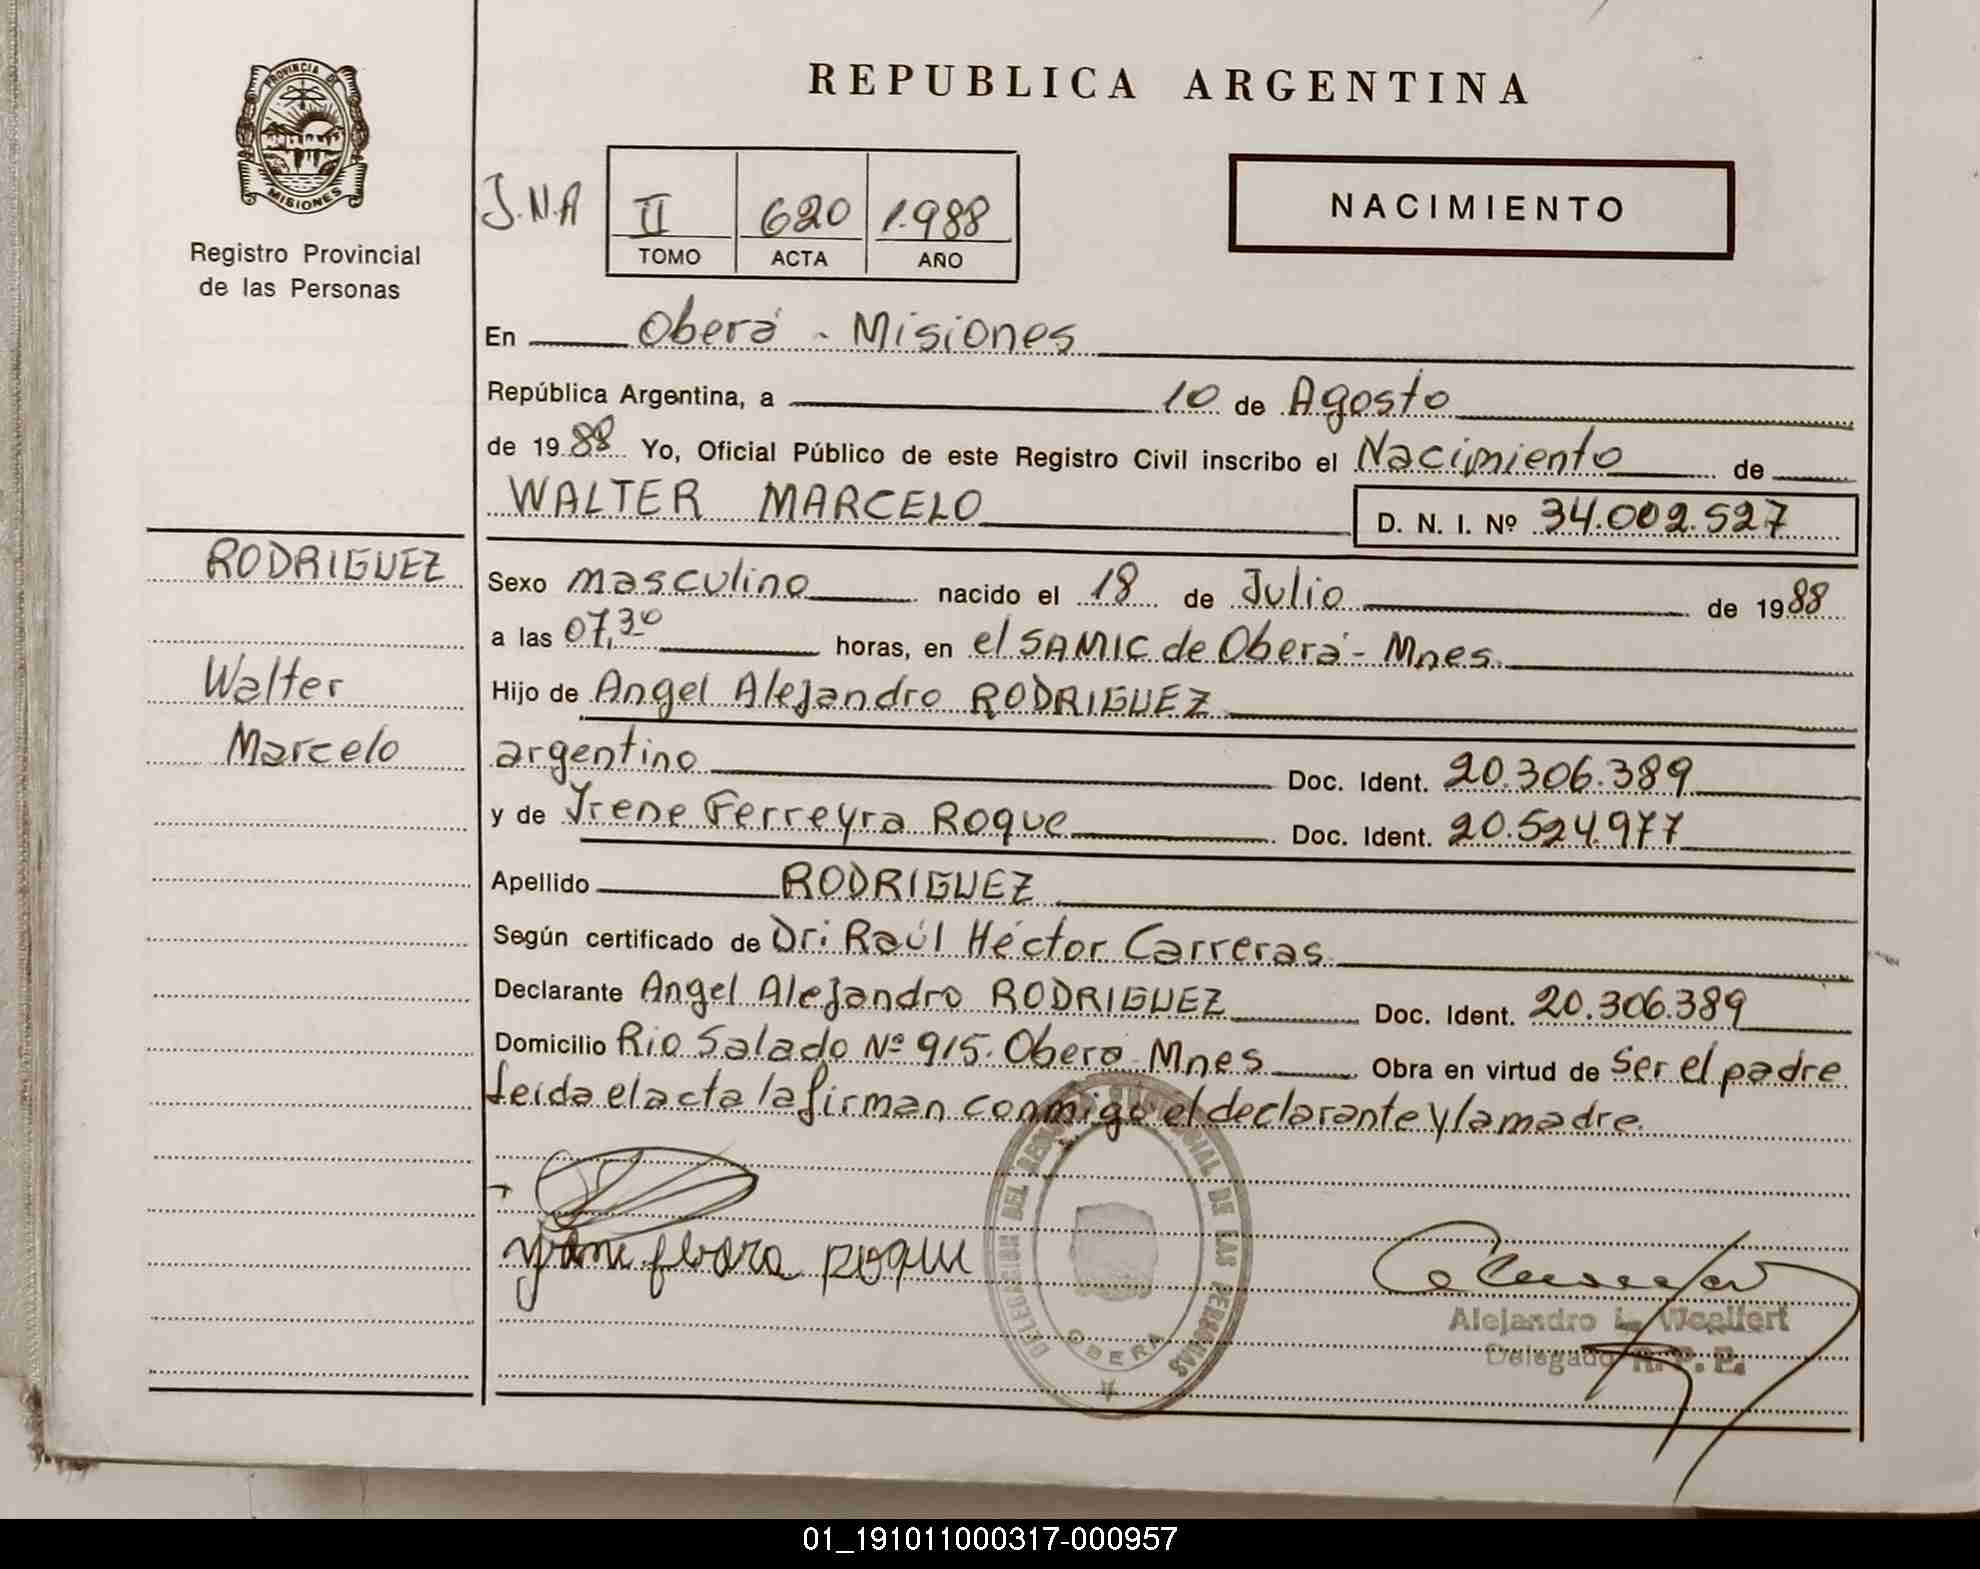 PROVINCIA DE
MISIONES
Registro Provincial
de las Personas
REPUBLICA ARGENTINA
NACIMIENTO
J.N.A
II 620 1.988
TOMO ACTA AÑO
En Oberá - Misiones
República Argentina, a 10 de Agosto
de 1988 Yo, Oficial Público de este Registro Civil inscribo el Nacimiento de
WALTER MARCELO D. N. I. Nº 34.002.527
RODRIGUEZ
Walter
Marcelo
Sexo masculino nacido el 18 de Julio de 1988
a las 07,30 horas, en el SAMIC de Oberá - Mnes.
Hijo de Angel Alejandro RODRIGUEZ
argentino Doc. Ident. 20.306.389
y de Irene Ferreyra Roque Doc. Ident. 20.524.977
Apellido RODRIGUEZ
Según certificado de Dr: Raúl Héctor Carreras
Declarante Angel Alejandro RODRIGUEZ Doc. Ident. 20.306.389
Domicilio Rio Salado Nº 915. Oberá Mnes Obra en virtud de Ser el padre
Leida el acta la firman conmigo el declarante y la madre.
DELEGACION DEL REGISTRO PROVINCIAL DE LAS PERSONAS
OBERA
Roque
Alejandro L. Woelfert
Delegado R. P. E.
01_191011000317-000957